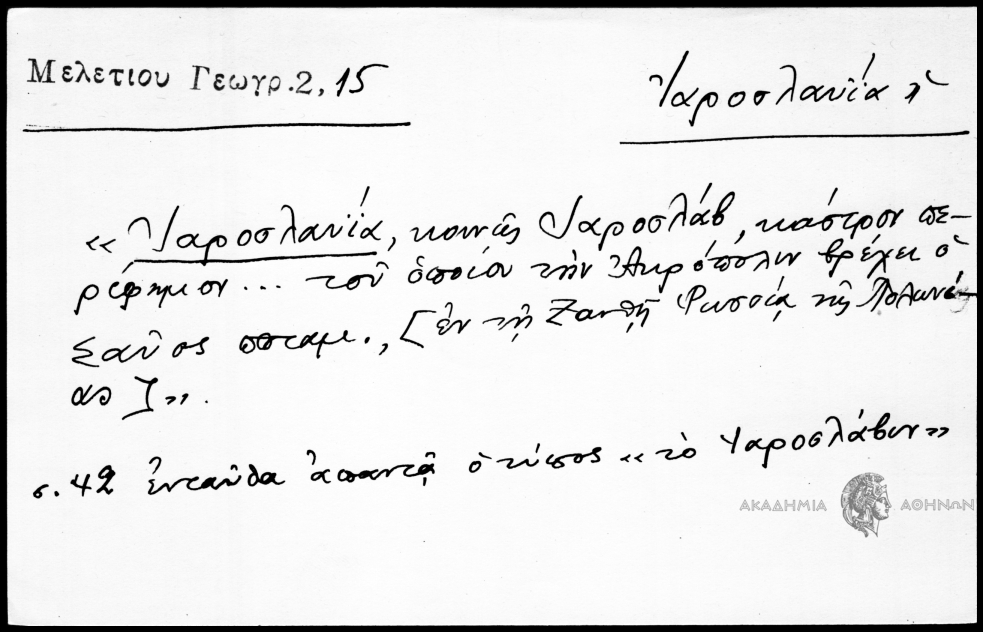 Μελετιου Γεωγρ. 2, 15
Ἰαροσλαυΐα ἡ
« Ἰαροσλαυΐα, κοινῶς Ἰαροσλάβ, κάστρον πε-
ρίφημον ... τοῦ ὁποίου τὴν Ἀκρόπολιν βρέχει ὁ
Σαῦος ποταμ., [ἐν τῇ Ξανθῇ Ῥωσσίᾳ τῆς Πολωνί-
ας]».
σ. 42 ἐνταῦθα ἀπαντᾷ ὁ τύπος «τὸ Ἰαροσλάβιν»
ΑΚΑΔΗΜΙΑ ΑΘΗΝΩΝ